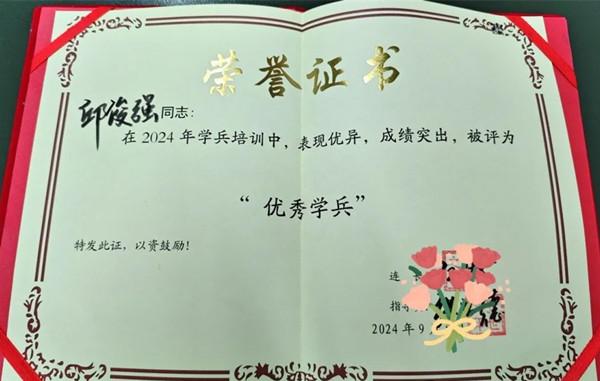 荣誉证书
邱俊强同志：
在2024年学兵培训中，表现优异，成绩突出，被评为
“优秀学兵”
特发此证，以资鼓励！
连
指
2024年9